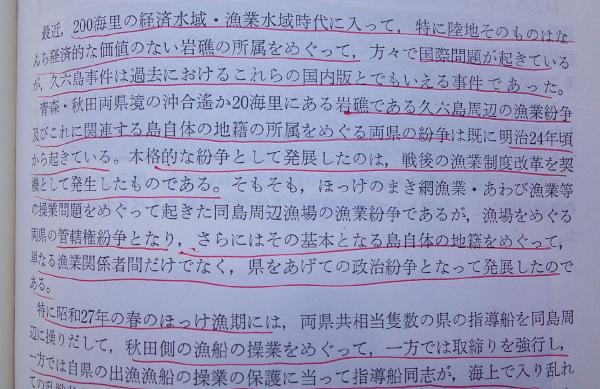 最近，200海里の経済水域・漁業水域時代に入って，特に陸地そのものはな
んら経済的な価値のない岩礁の所属をめぐって，方々で国際問題が起きている
が，久六島事件は過去におけるこれらの国内版とでもいえる事件であった。
青森・秋田両県境の沖合遙か20海里にある岩礁である久六島周辺の漁業紛争
及びこれに関連する島自体の地籍の所属をめぐる両県の紛争は既に明治24年頃
から起きている。本格的な紛争として発展したのは，戦後の漁業制度改革を契
機として発生したものである。そもそも，ほっけのまき網漁業・あわび漁業等
の操業問題をめぐって起きた同島周辺漁場の漁業紛争であるが，漁場をめぐる
両県の管轄権紛争となり，さらにはその基本となる島自体の地籍をめぐって，
単なる漁業関係者間だけでなく，県をあげての政治紛争となって発展したので
ある。
特に昭和27年の春のほっけ漁期には，両県共相当隻数の県の指導船を同島周
辺に操りだして，秋田側の漁船の操業をめぐって，一方では取締りを強行し，
一方では自県の出漁漁船の操業の保護に当って指導船同志が，海上で入り乱れ